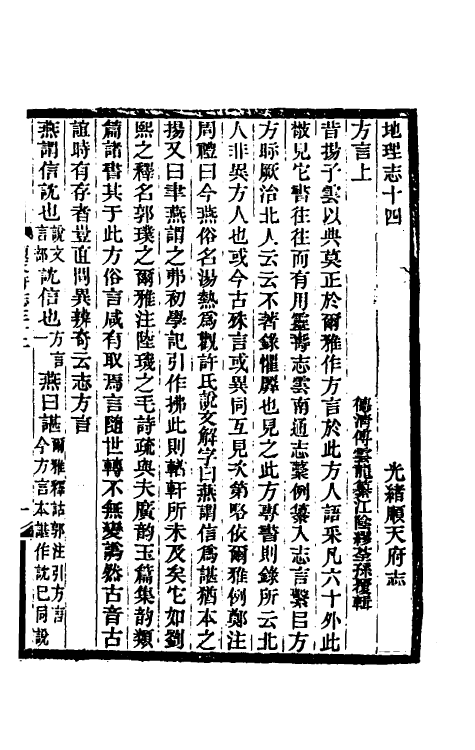 地理志十四
光緒順天府志
方言上
德清傅雲龍纂江陰繆荃孫覆輯
昔揚子雲以典莫正於爾雅作方言於此方人語采凡六十外此
散見它書往往而有用
志雲南通志纂例纂入志言繫㠯方
方眎厥治北人云云不著錄懼
也見之此方專書則錄所云北
人非吳方人也或今古殊言或異同互見次第略依爾雅例鄭注
周禮曰今燕俗名湯熱爲觀許氏說文解字曰燕謂信爲諶猶本之
揚又曰聿燕謂之弗初學記引作拂此則輶軒所未及矣它如劉
熙之釋名郭璞之爾雅注陸璣之毛詩疏與夫廣韵玉篇集韵類
篇諸書其于此方俗言咸有取焉言隨世轉不無變譌然古音古
誼時有存者豈直問異辨奇云志方言
燕謂信訦也說文言部訦信也一方言燕曰諶爾雅釋詁郭注引方言今方言本諶作訦已同說